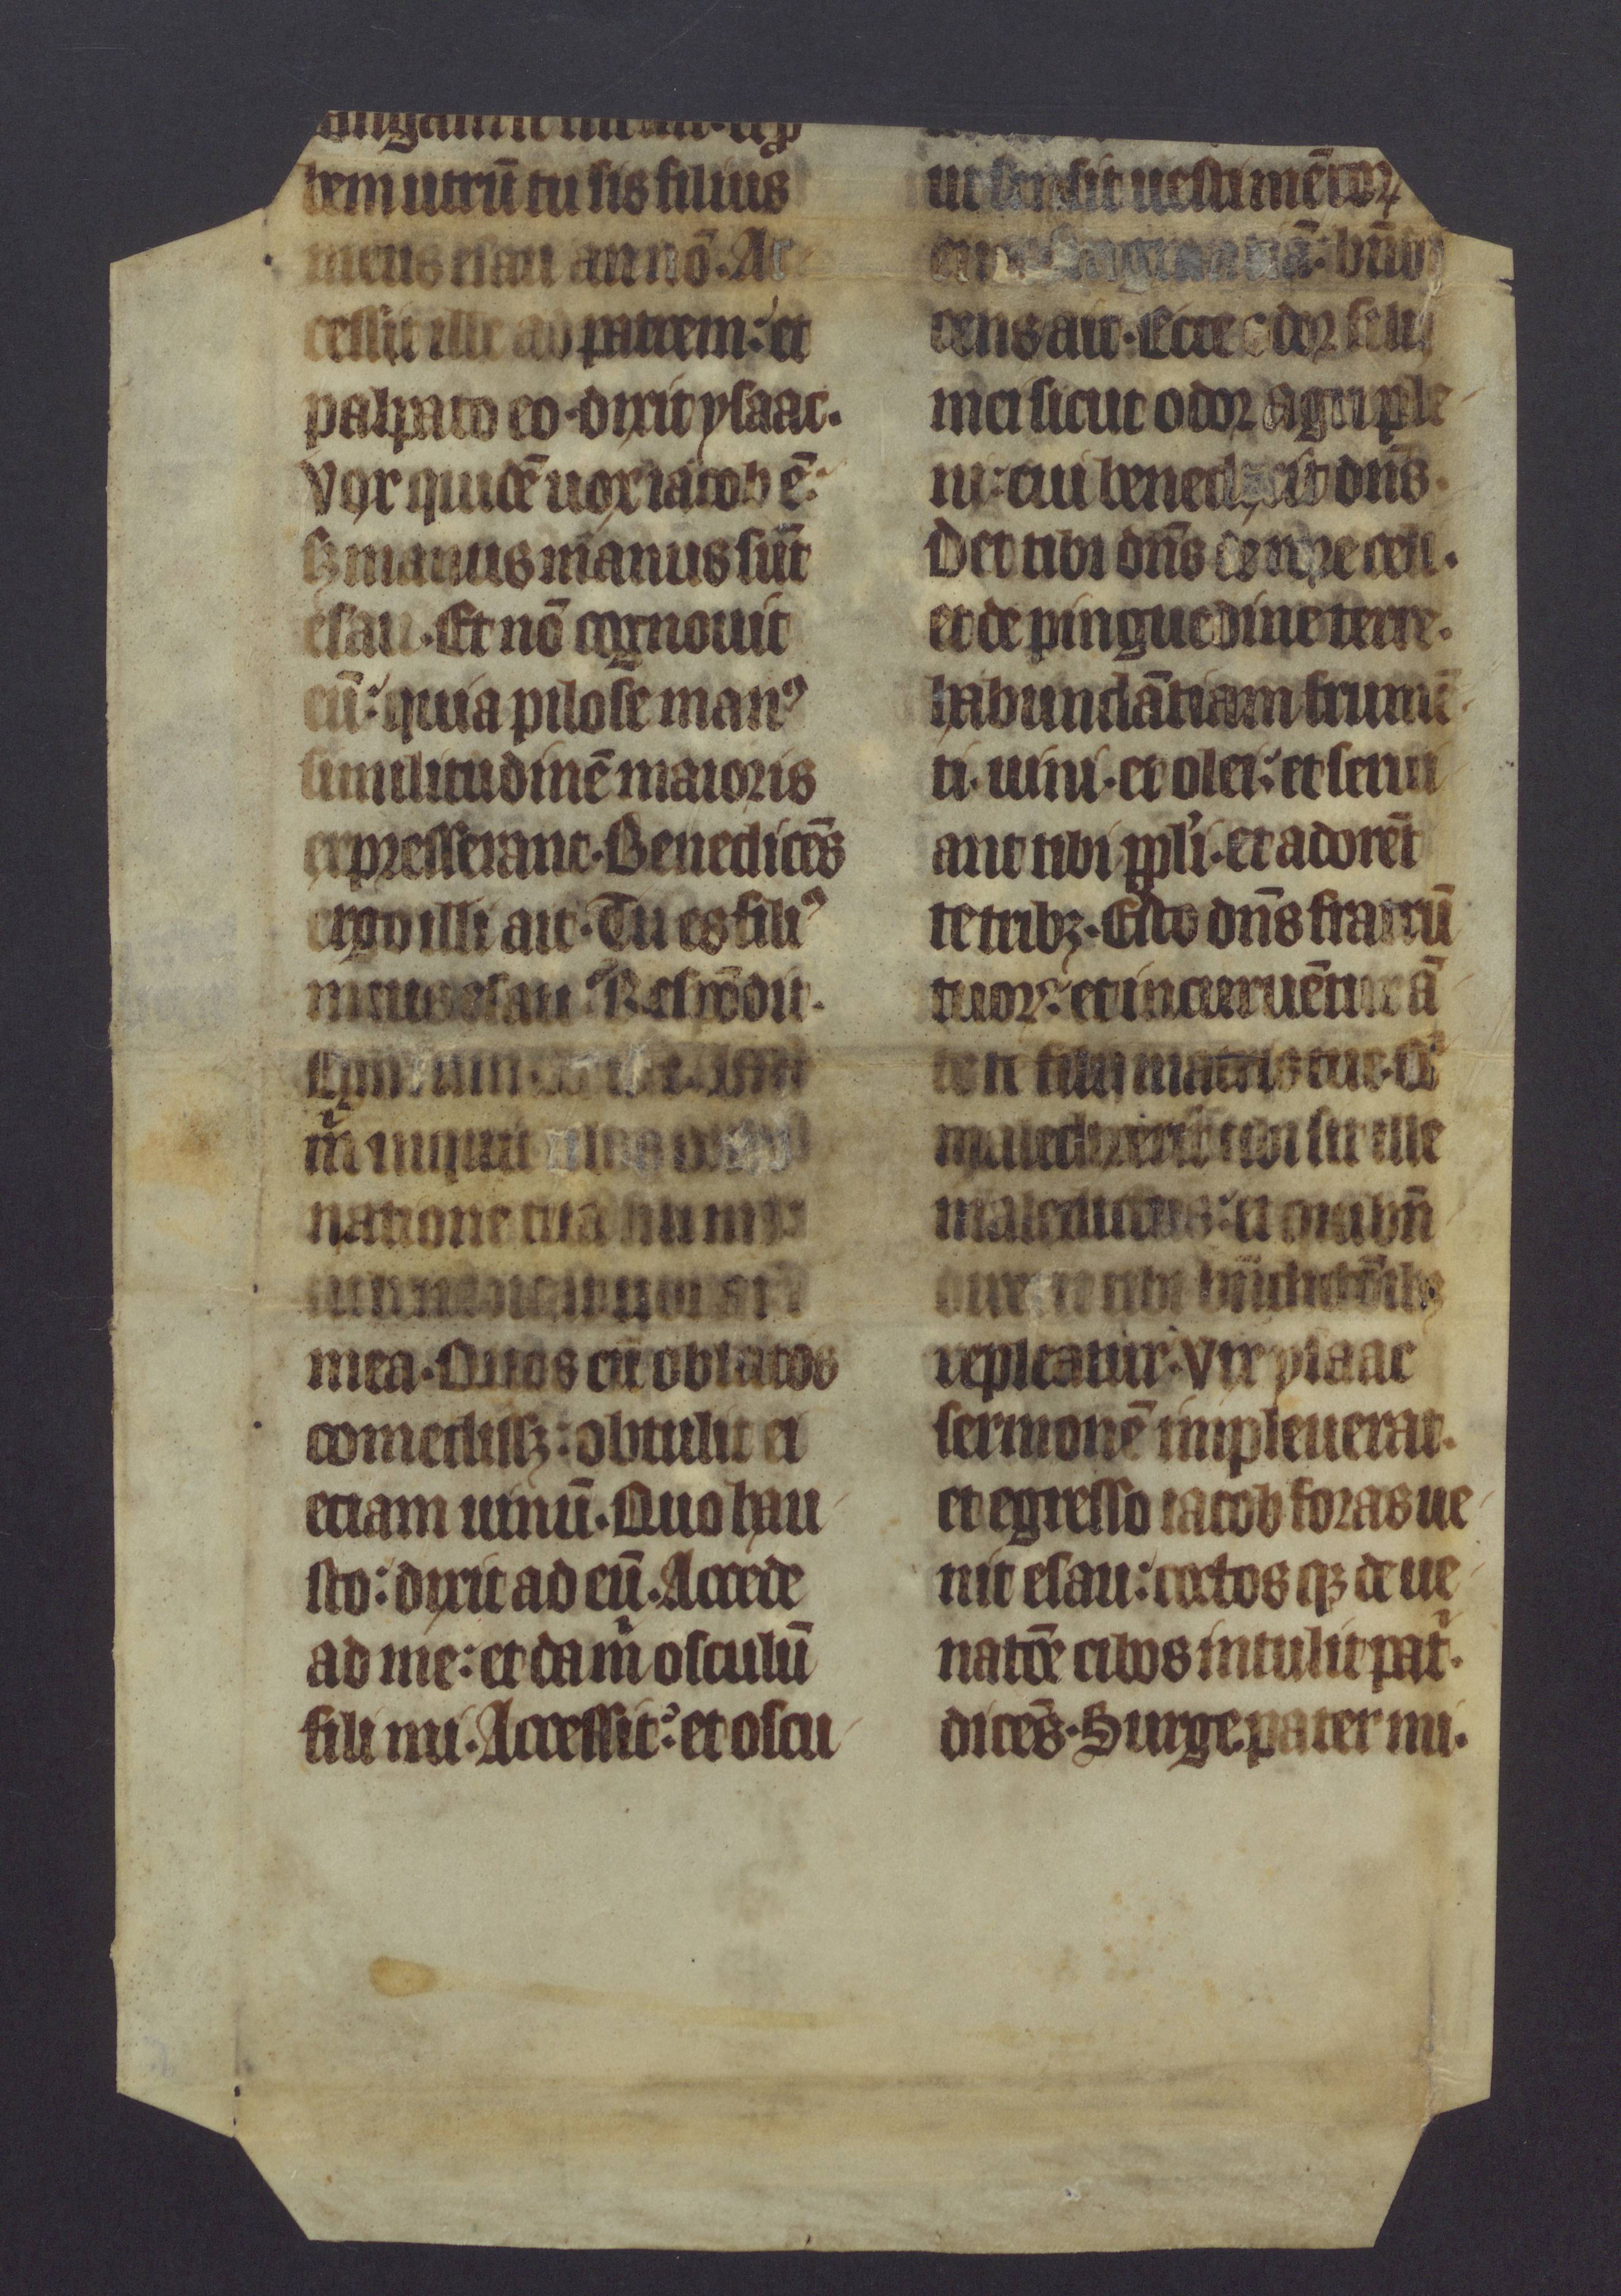 tangam te fili mi · et p̱
bem utrū tu sis filius
meus esau an nō · Ac
cessit ille ad patrem : et
palpato eo · dixit ysaac ·
Vox quidē uox iacob ē :
sꝫ manus manus sūt
esau · Et nō cognouit
eū : quia pilose manꝰ
similitudinē maioris
expresserant · Benedicēs
ergo illi ait · Tu es filiꝰ
meus esau : Respōdit ·
Ego sum ·
m̄ inquit
natione tua fili mi :
mea · Quos cū oblatos
comedissꝫ : obtulit ei
etiam uinū · Quo hau
sto : dixit ad eū · Accede
ad me : et da m̄ osculū
fili mi · Accessit : et oscu
ut sensit uestimētoꝝ
eius fragrantiā : bn̄di
cens ait · Ecce odor filii
mei sicut odor agri ple
ni : cui benedixit dn̄s ·
Det tibi dn̄s de rore celi ·
et de pinguedine terre ·
habundātiam frumē
ti · uini · et olei : et serui
ant tibi ppl̓i · et adorēt
te tribꝫ · Esto dn̄s fratrū
tuoꝝ : et incuruētur ā
te te filii matris tue · Q
maledixerit tibi sit ille
maledictus : et qui bn̄
dixerit tibi bn̄dictōibꝫ
repleatur · Vix ysaac
sermonē impleuerat ·
et egresso iacob foras ue
nit esau : coctosqꝫ de ue
natōe cibos intulit pat̄ ·
dicēs · Surge pater mi ·